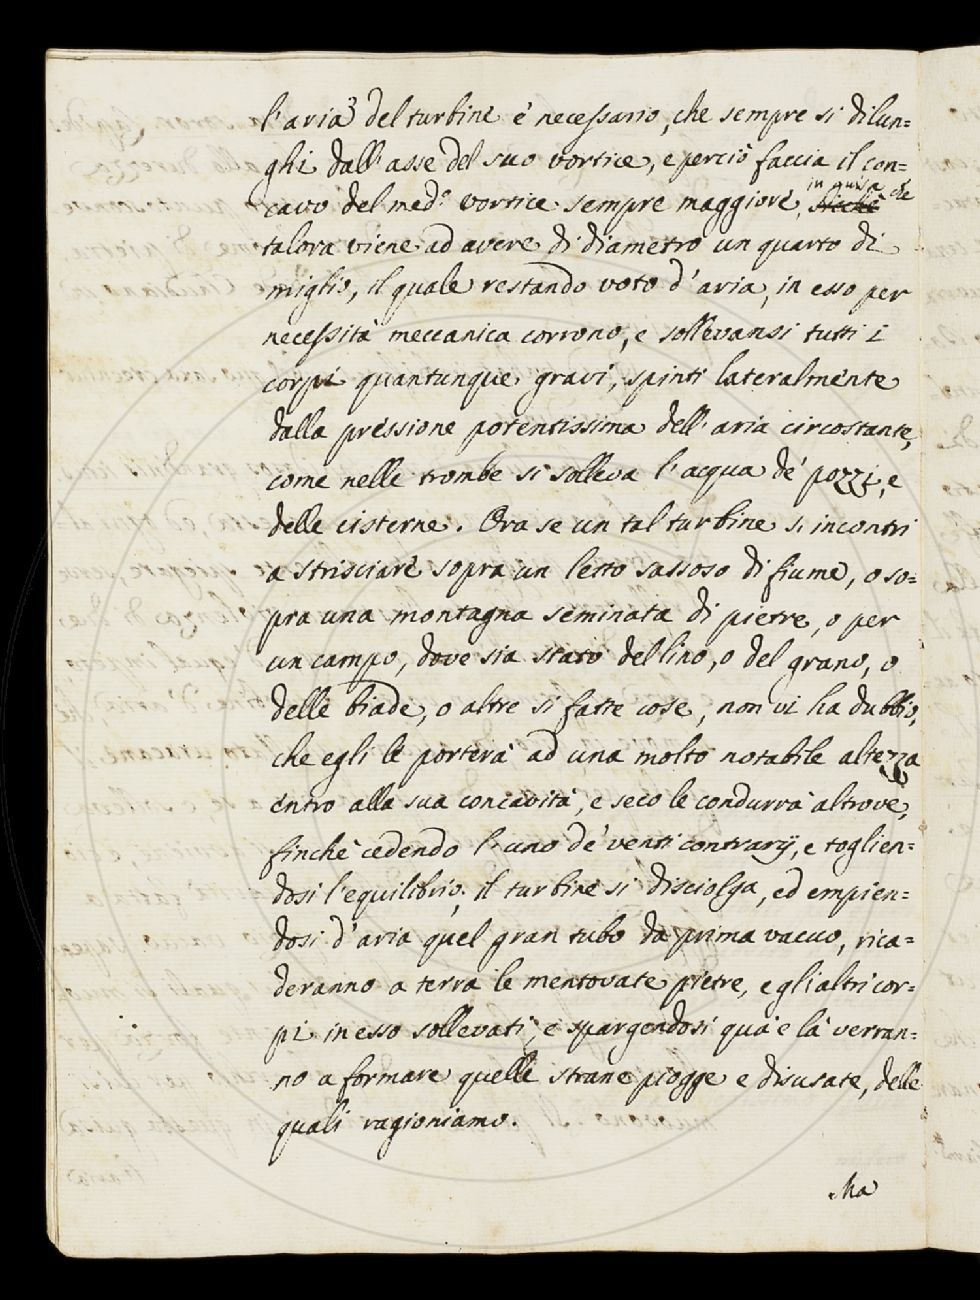 l'aria del turbine è necessario, che sempre si dilun=
ghi dall'asse del suo vortice, e perciò faccia il con=
cavo del med.º vortice sempre maggiore, in guisa che
talora viene ad avere di diametro un quarto di
miglio, il quale restando voto d'aria, in esso per
necessità meccanica corrono, e sollevansi tutti i
corpi quantunque gravi, spinti lateralmente
dalla pressione potentissima dell'aria circostante,
come nelle trombe si solleva l'acqua de' pozzi, e
delle cisterne. Ora se un tal turbine s'incontri
a strisciare sopra un letto sassoso di fiume, o so=
pra una montagna seminata di pietre, o per
un campo, dove sia stato del lino, o del grano, o
delle biade, o altre si fatte cose, non vi ha dubbio,
che egli le porterà ad una molto notabile altezza
entro alla sua concavità, e seco le condurrà altrove,
finchè cedendo l'uno de' venti contrarij, e toglien=
dosi l'equilibrio, il turbine si disciolga, ed empien=
dosi d'aria quel gran tubo da prima vacuo, rica=
deranno a terra le mentovate pietre, e gli altri cor=
pi in esso sollevati, e spargendosi quà e là verran=
no a formare quelle strane piogge e disusate, delle
quali ragioniamo.
Ma